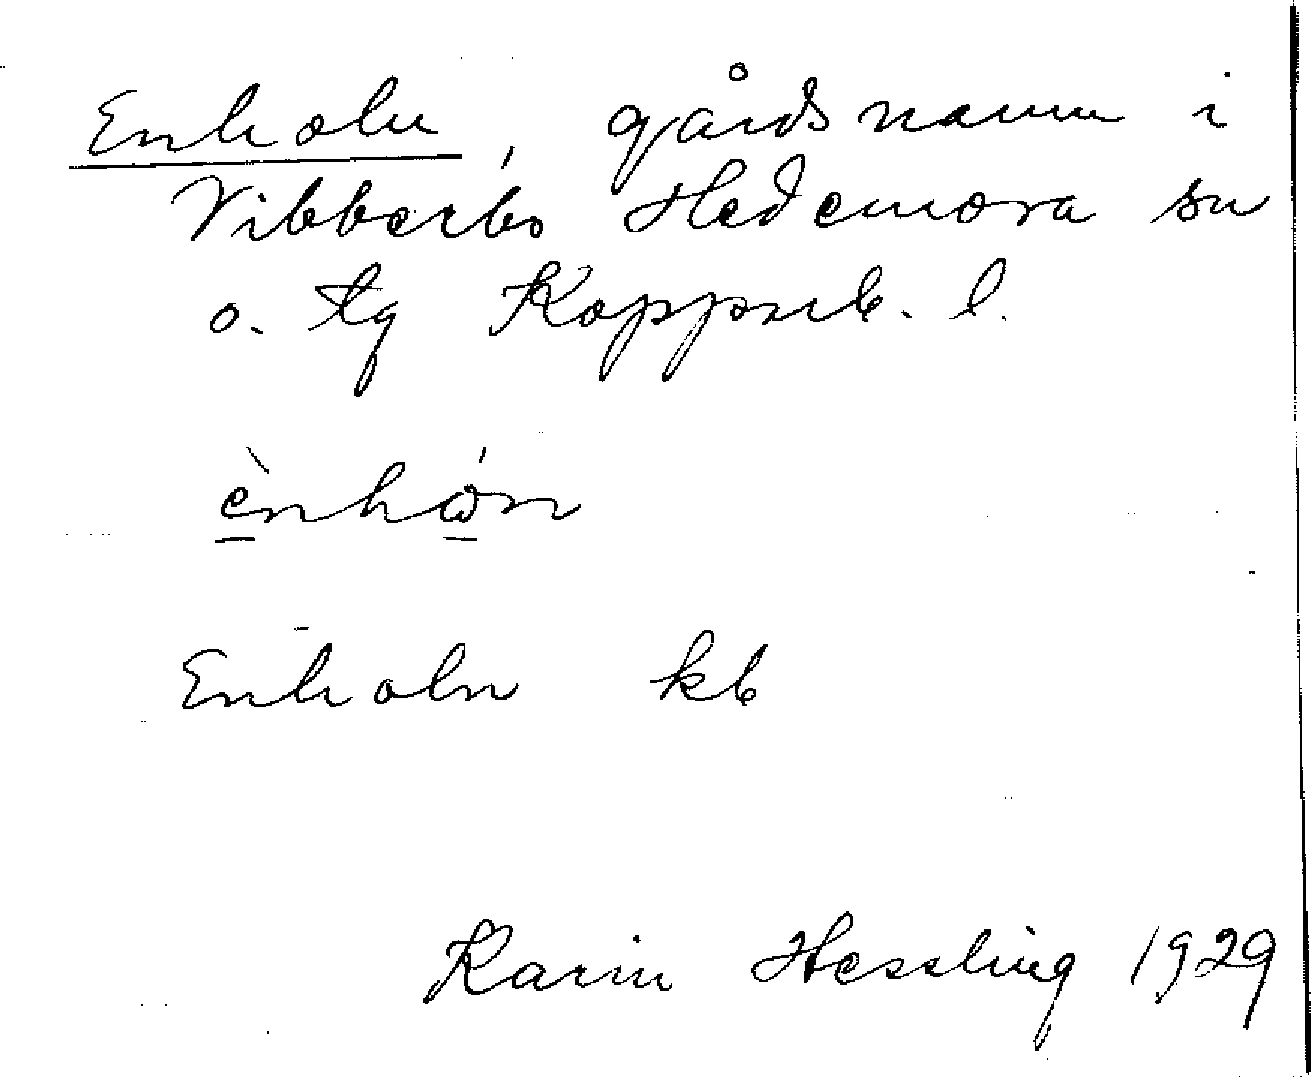 Enholn, gårdsnamn i
Vibberbo Hedemora sn
o. tg Kopparb. l.
ènhón
Enholn kb
Karin Hessling 1929